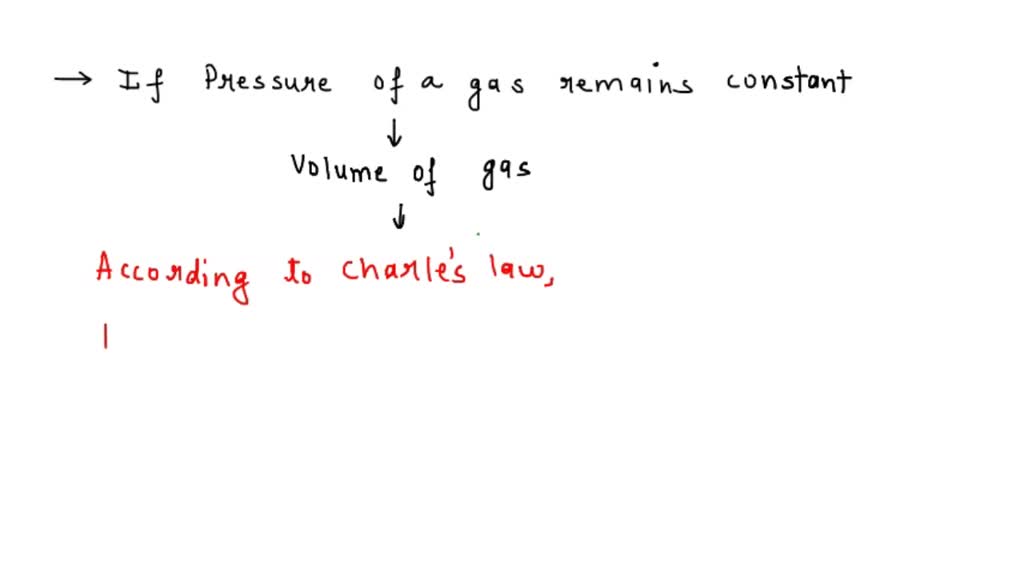 → If Pressure of a gas remains constant
↓
Volume of gas
↓
According to Charle's law,